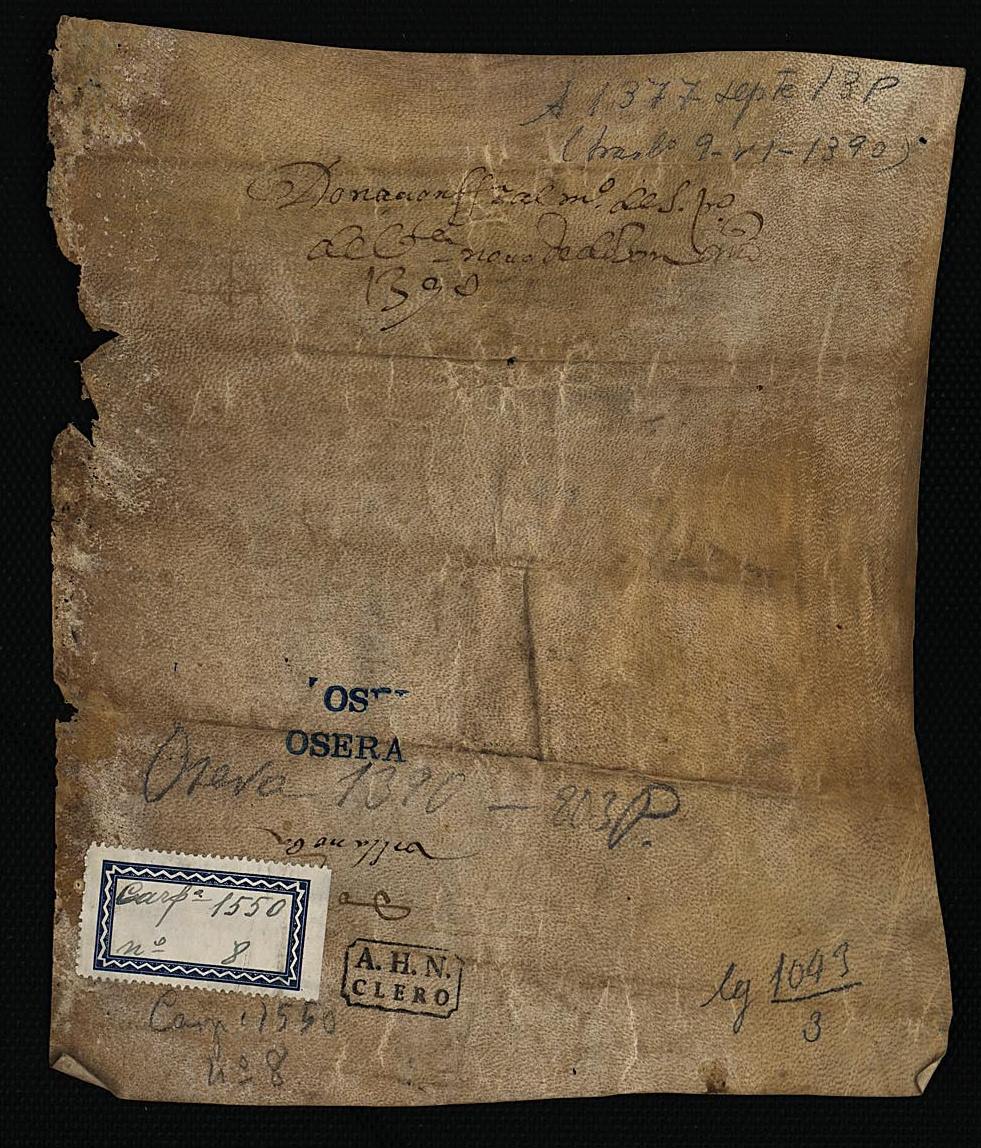 A 1377 septe 13 P
(traslº 9-VI-1390)
Donacion ffza al mº. de S. Pº
de
1390
OSE
OSERA
Osera 1390 — 803 P.
villa noba
Carpª 1550
nº 8
A. H. N.
CLERO
lg 1093
3
Carp. 1550
nº 8